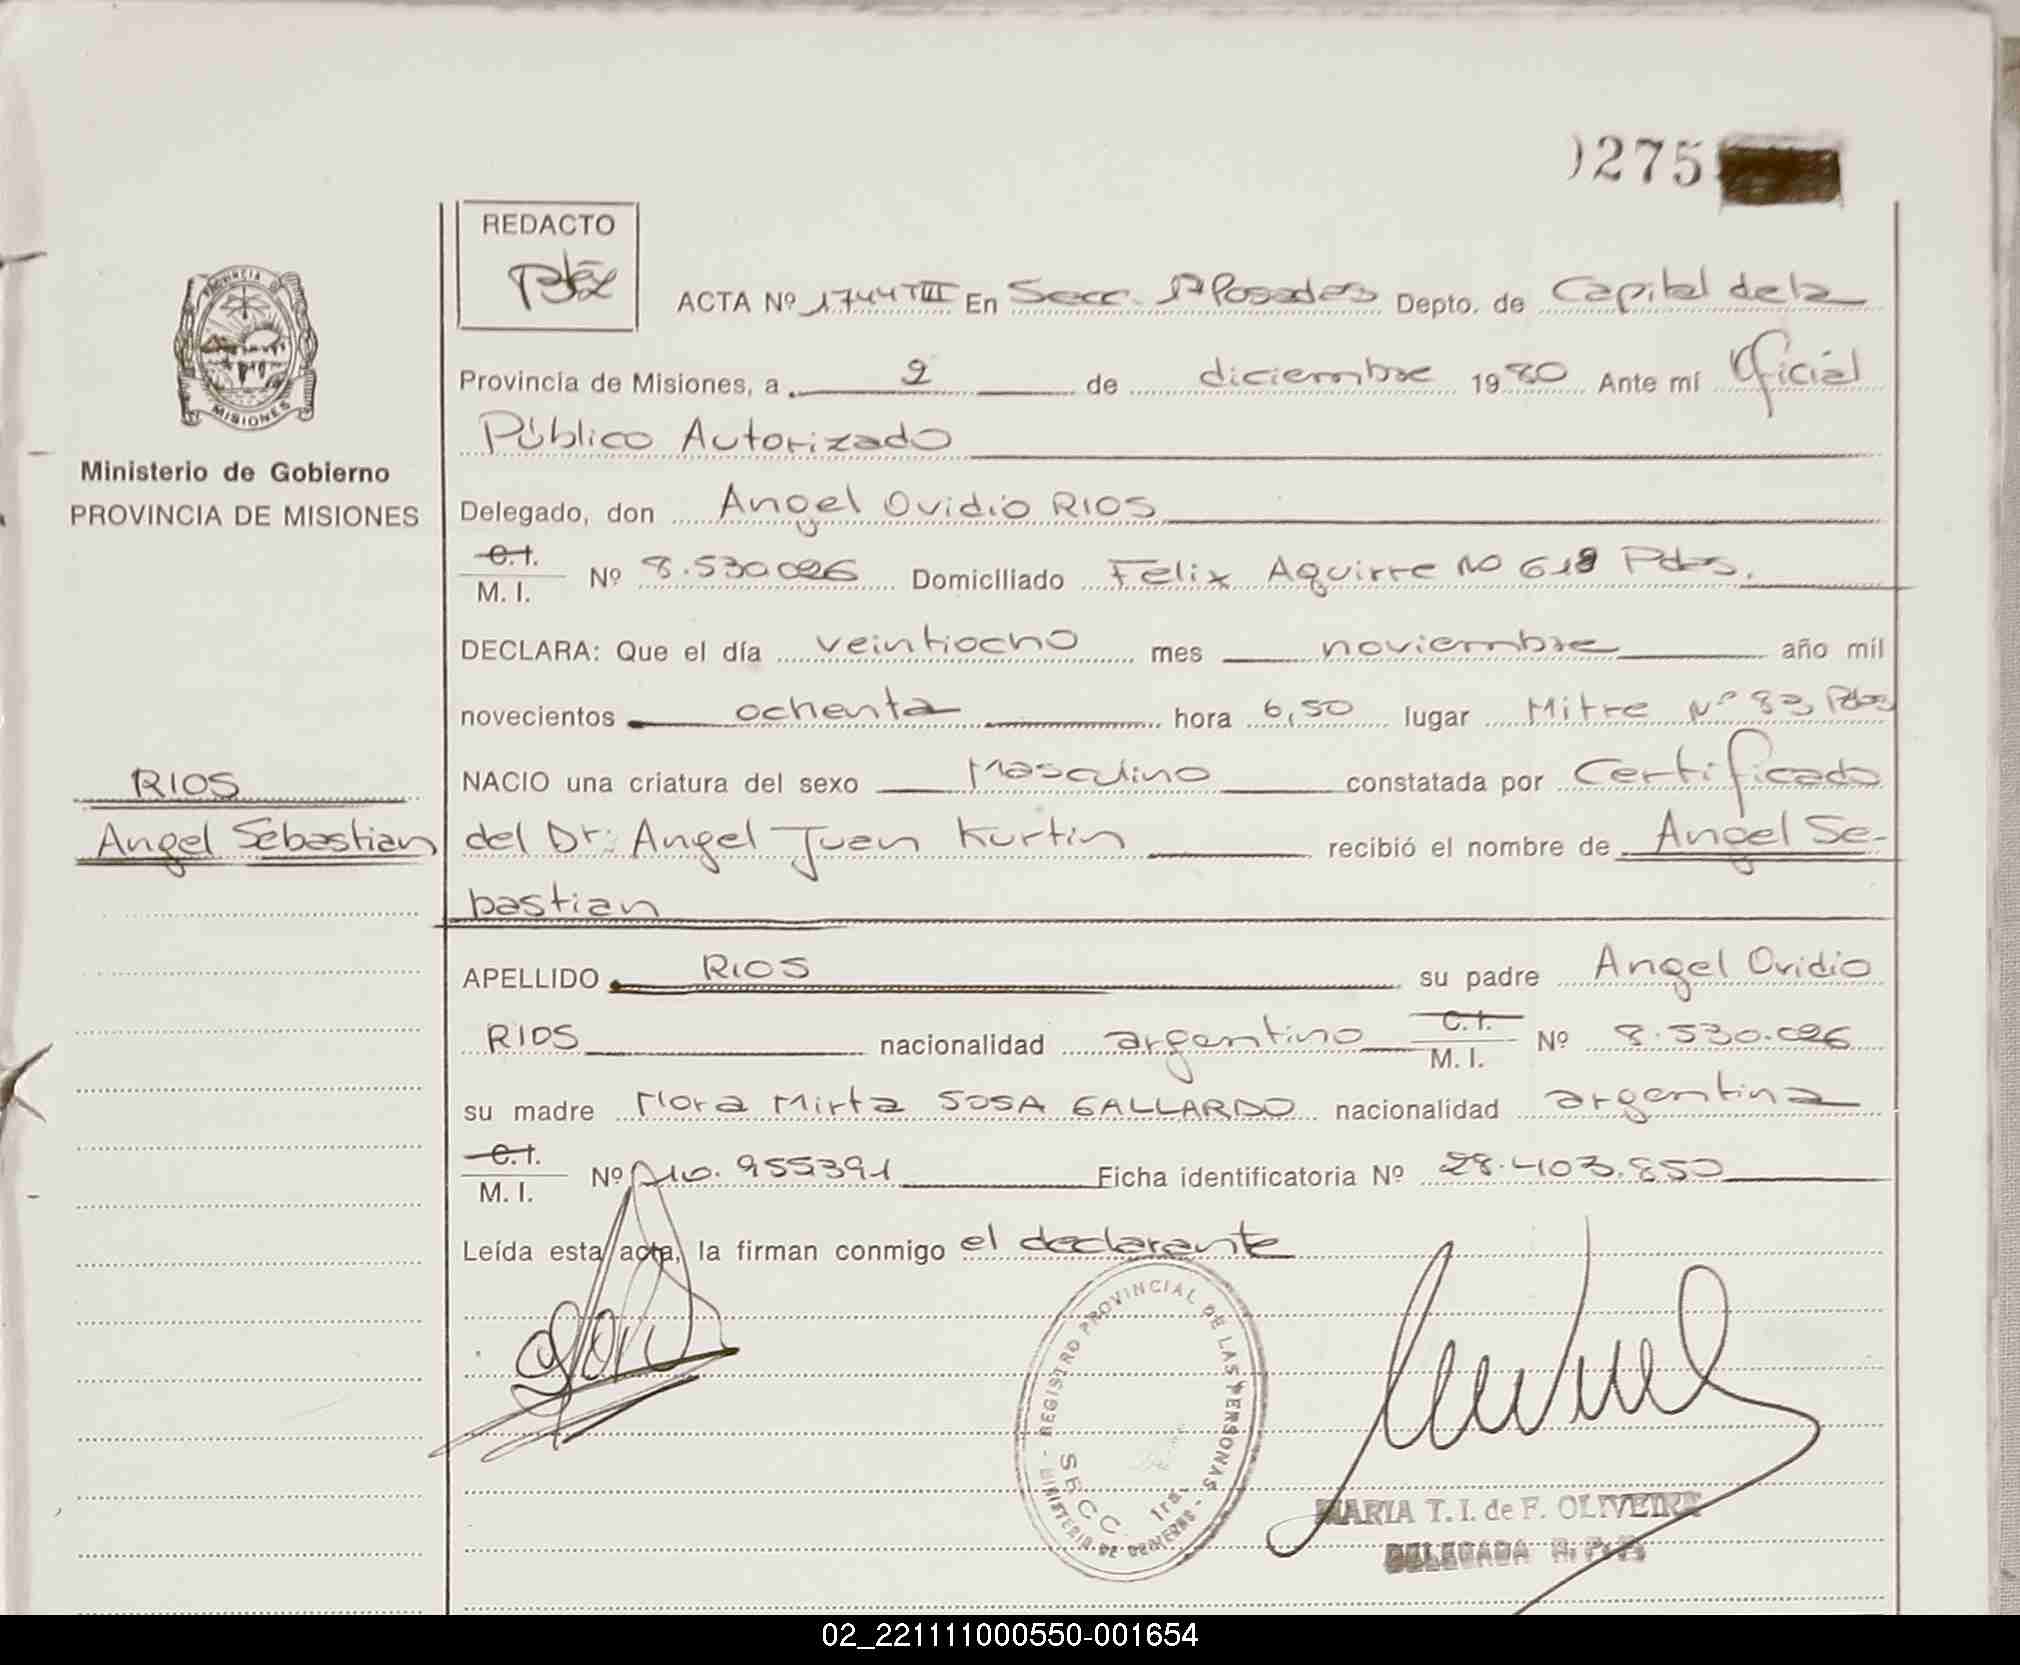 275
REDACTO
ACTA Nº 1744 TIII En Secc. 1ª Posadas Depto. de Capital de la
Provincia de Misiones, a 2 de diciembre 1980 Ante mí Oficial
Público Autorizado
PROVINCIA DE
MISIONES
Ministerio de Gobierno
PROVINCIA DE MISIONES
Delegado, don Angel Ovidio RIOS
C.I.
M. I. Nº 8.530.026 Domiciliado Felix Aguirre Nº 618 Pdas.
DECLARA: Que el día veintiocho mes noviembre año mil
novecientos ochenta hora 6,50 lugar Mitre Nº 83 Pdas
RIOS
Angel Sebastian
NACIO una criatura del sexo Masculino constatada por Certificado
del Dr: Angel Juan Kurtin recibió el nombre de Angel Se-
bastian
APELLIDO RIOS su padre Angel Ovidio
RIOS nacionalidad argentino C.I. M. I. Nº 8.530.026
su madre Mirta SOSA GALLARDO nacionalidad argentina
C.I.
M. I. Nº 10.955391 Ficha identificatoria Nº 28.403.850
Leída esta acta, la firman conmigo el declarante
REGISTRO PROVINCIAL DE LAS PERSONAS
MINISTERIO DE GOBIERNO
SECC. 1ra.
MARIA T. I. de F. OLIVEIRA
DELEGADA R. P. P.
02_221111000550-001654